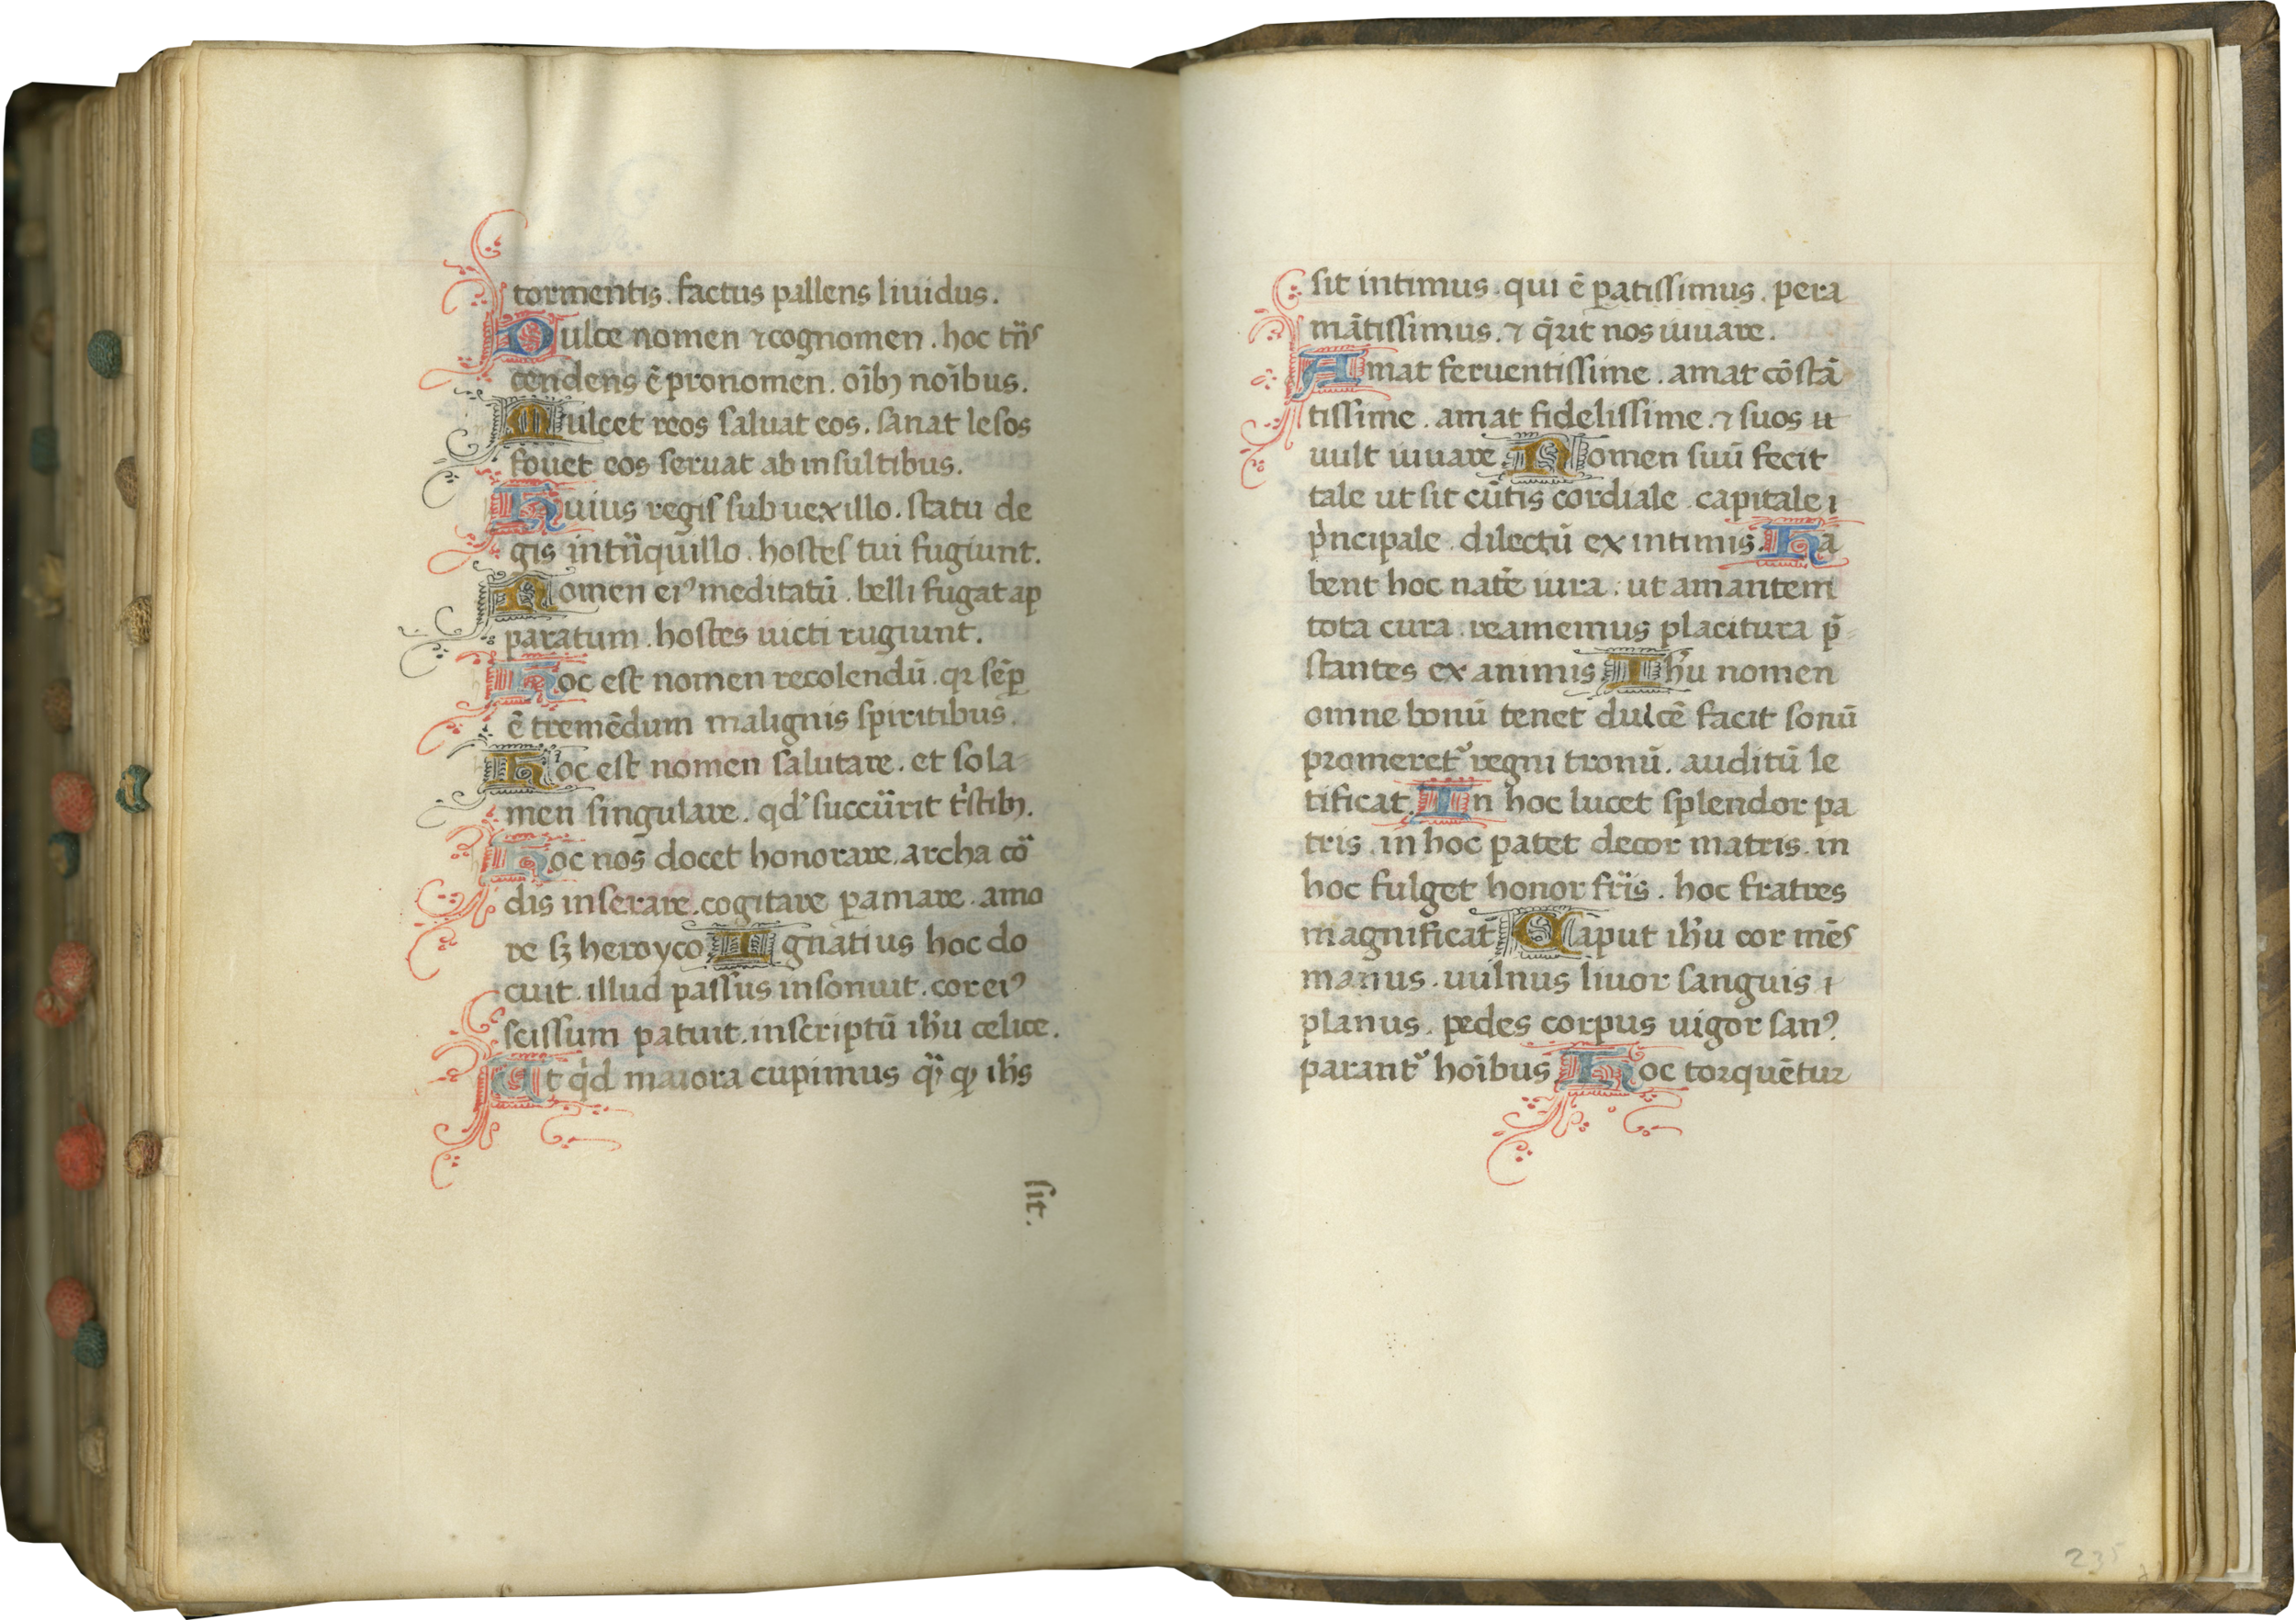 tormentis. factus pallens liuidus.
Dulce nomen ⁊ cognomen. hoc tñs
cendens ē pronomen. oībꝫ noībus.
Mulcet reos saluat eos. sanat lesos
fouet eos seruat ab insultibus.
Huius regis sub uexillo. statu de
gis intñquillo. hostes tui fugiunt.
Nomen eiꝰ meditatū. belli fugat ap
paratum. hostes uicti rugiunt.
Hoc est nomen recolendū. qꝛ sēꝑ
ē tremēdum malignis spiritibus.
Hoc est nomen salutare. et sola
men singulare. qd' succūrit tístibꝫ.
Hoc nos docet honorare. archa cō
dis inserare. cogitare ꝑamare. amo
re sꝫ heroyco Ignatius hoc do
cuit. illud passus insonuit. cor eiꝰ
scissum patuit. inscriptū ihu celice.
At qd maiora cupimus ihs
sit.
sit intimus. qui ē ꝑatissimus. pera
mātissimus. ⁊ q̄rit nos iuuare.
Amat feruentissime. amat cōstā
tissime. amat fidelissime. ⁊ suos
uult iuuare Nomen suū fecit
tale ut sit cūtis cordiale. capitale ⁊
pⁱncipale. dilectū ex intimis. Ha
bent hoc nate iura. ut amantem
tota cura. reamemus placitura p̄
stantes ex animis Ihu nomen
omne bonū tenet dulcē facit sonū
promeretᷣ regni tronū. auditū le
tificat. In hoc lucet splendor pa
tris. in hoc patet decor matris. in
hoc fulget honor frīs. hoc fratres
magnificat Caput ihu cor mēs
manus. uulnus liuor sanguis ⁊
planus. pedes corpus uigor sanꝰ.
parantᷣ hoībus Hoc torquētur
235